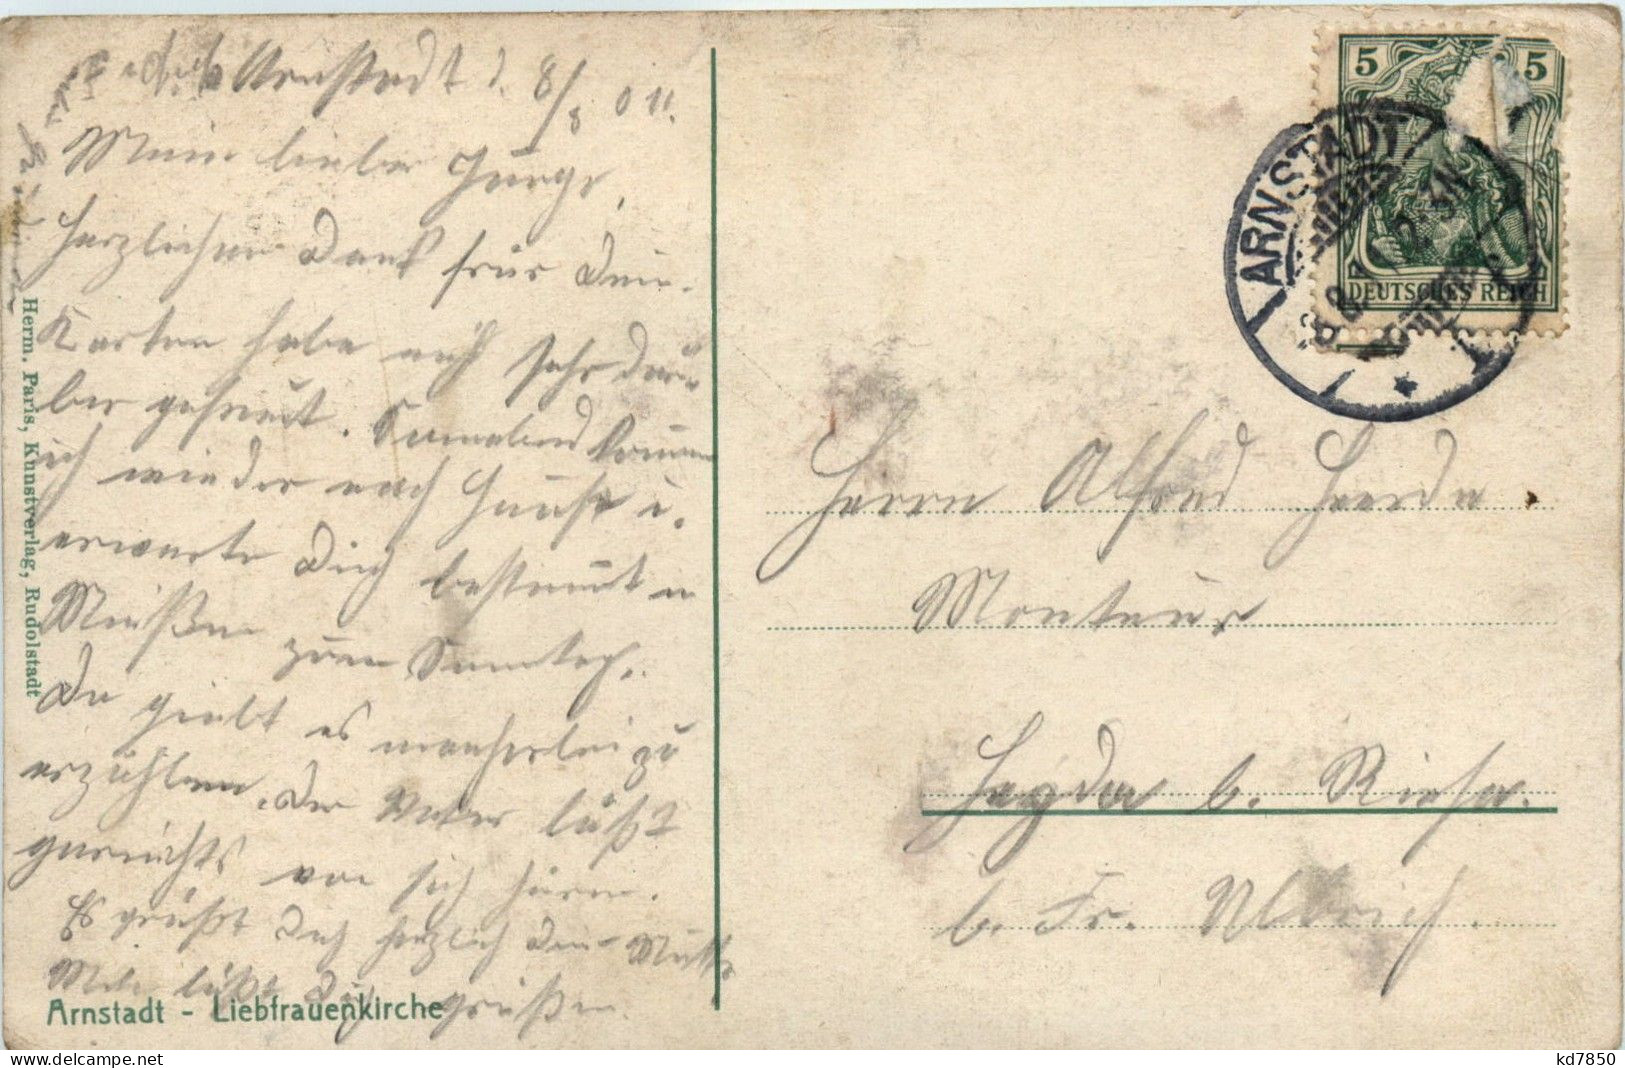 Arnstadt d. 8/8 011.
Mein lieber Junge,
herzlichen Dank für Dein.
Karten habe mich sehr darü-
ber gefreut. Sonnabend komme
ich wieder nach Hause u.
erwarte Dich bestimmt in
Meißen zum Sonntag.
Da giebt es mancherlei zu
erzählen. Der Vater läßt
garnichts von sich hören.
Es grüßt Dich herzlich Deine Mutter
läßt Dich grüßen.
Arnstadt - Liebfrauenkirche
Herm. Paris, Kunstverlag, Rudolstadt
5 5
DEUTSCHES REICH
ARNSTADT
Herrn Alfred
Monteur
b. Riesa.
b. Fr. Ulbrich.
kd7850